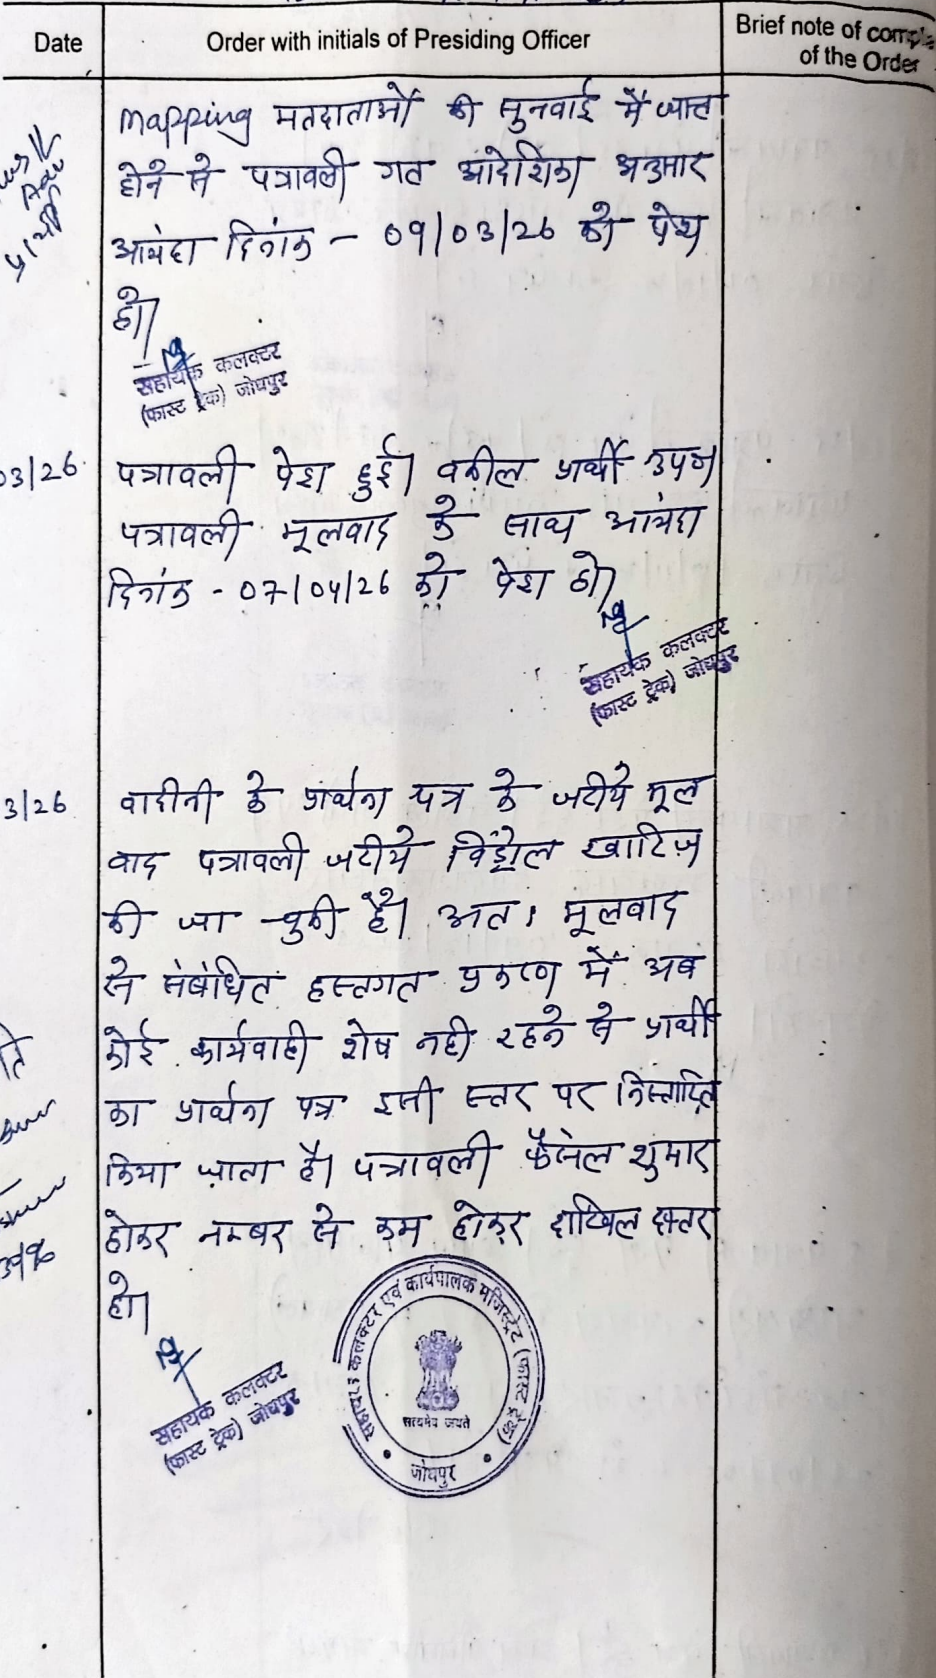 Date
Order with initials of Presiding Officer
Brief note of comple
of the Order
mapping मतदाताओं की सुनवाई में व्यस्त
होने से पत्रावली गत आदेशिका अनुसार
आयंदा दिनांक - 09/03/26 को पेश
हो।
सहायक कलक्टर
(फास्ट ट्रेक) जोधपुर
03/26
पत्रावली पेश हुई। वकील प्रार्थी उप०
पत्रावली मूलवाद के साथ आयंदा
दिनांक - 07/04/26 को पेश हो।
सहायक कलक्टर
(फास्ट ट्रेक) जोधपुर
3/26
वादीनी के प्रार्थना पत्र के जरीये मूल
वाद पत्रावली जरीये विड्रोल खारिज
की जा चुकी है। अतः मूलवाद
से संबंधित हस्तगत प्रकरण में अब
कोई कार्यवाही शेष नही रहने से प्रार्थी
का प्रार्थना पत्र इसी स्तर पर निस्तारित
किया जाता है। पत्रावली फैसल शुमार
होकर नम्बर से कम होकर दाखिल दफ्तर
हो।
सहायक कलक्टर
(फास्ट ट्रेक) जोधपुर
सहायक कलक्टर एवं कार्यपालक मजिस्ट्रेट (फास्ट ट्रेक)
सत्यमेव जयते
जोधपुर